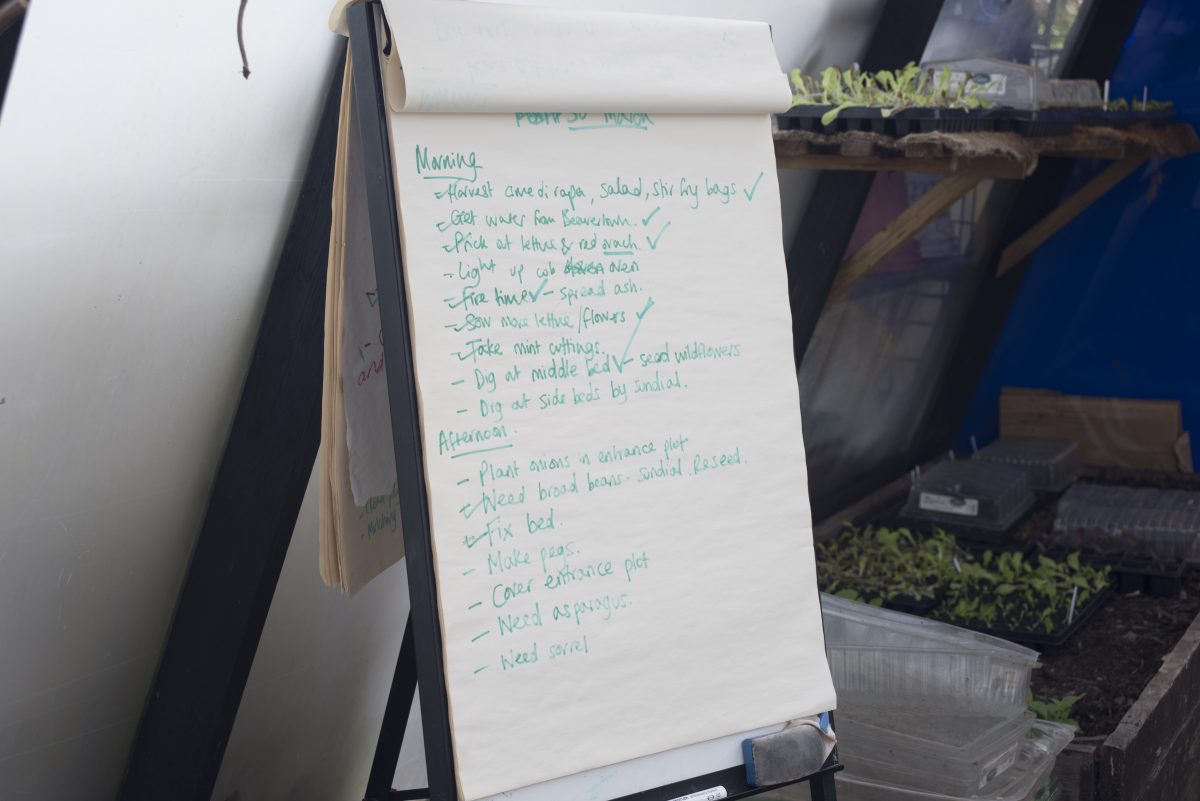 30 March
Morning
- Harvest cime di rapa, salad, stir fry bags ✓
- Get water from Beavertown. ✓
- Prick out lettuce & red orach. ✓
- Light up cob oven
- Fire time ✓ - spread ash.
- Sow more lettuce/flowers ✓
- Take mint cuttings.
- Dig out middle bed ✓ - seed wildflowers
- Dig out side beds by sundial.
Afternoon.
- Plant onions in entrance plot
- Weed broad beans - sundial. Reseed.
- Fix bed.
- Make pegs.
- Cover entrance plot
- Weed asparagus.
- Weed sorrel
and
- Clean
- Mulching